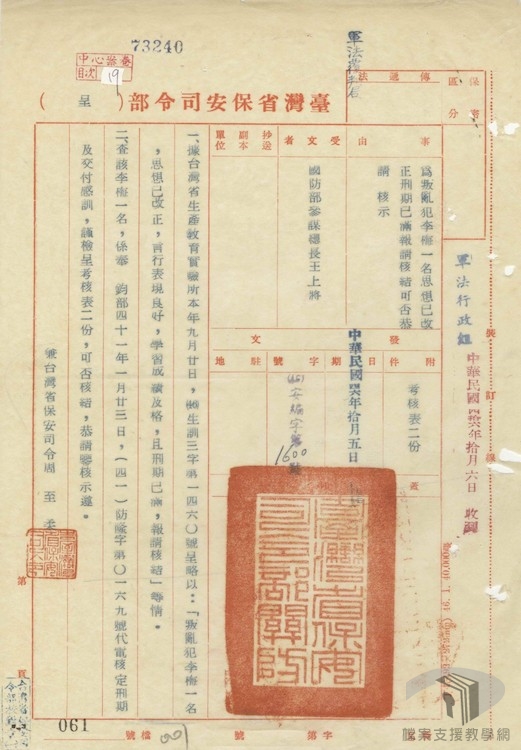 73240
軍法覆李辰
中心編案
目次 19
臺灣省保安司令部（呈）
保密
區分
傳遞法
事由
為叛亂犯李梅一名思想已改
正刑期已滿報請核結可否恭
請核示
受文者
國防部參謀總長王上將
抄送
副本
單位
附件
考核表二份
發文
日期
中華民國四六年拾月五日
字號
(46)安編字第1600號
駐地
軍法行政組
中華民國四六年拾月六日 收調
裝訂線
一、據台灣省生產教育實驗所本年九月廿日，(46)生訓三字第一四六〇號呈略以：「叛亂犯李梅一名
，思想已改正，言行表現良好，學習成績及格，且刑期已滿，報請核結」等情。
二、查該李梅一名，係奉 鈞部四十一年一月廿三日，(四一)防隆字第〇一六九號代電核定刑期
及交付感訓，謹檢呈考核表二份，可否核結，恭請鑒核示遵。
兼台灣省保安司令周至柔
臺灣省保安司令部關防
第 頁
061
檔號
字第 號
檔案支援教學網